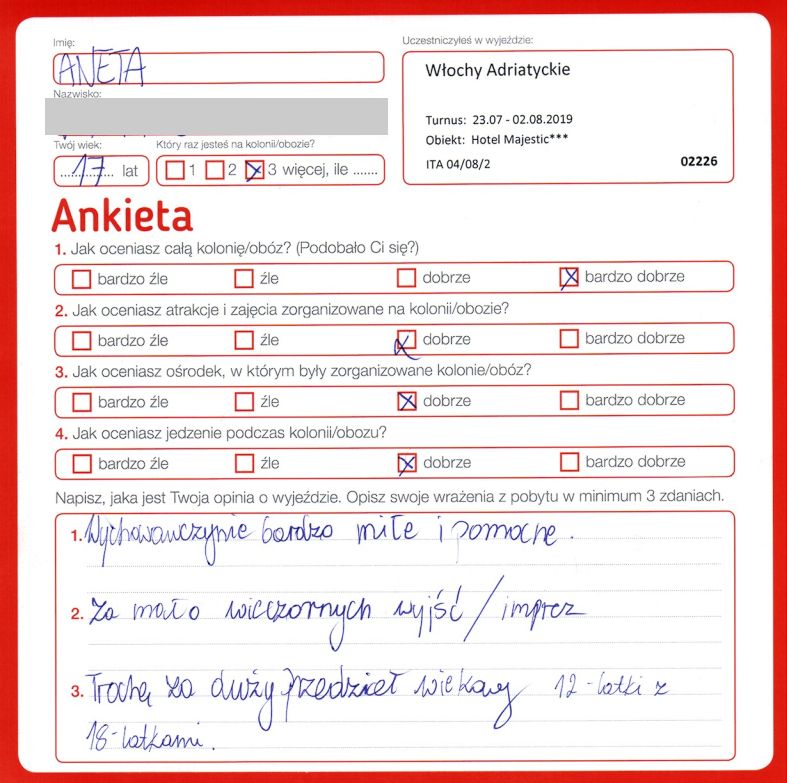 Imię:
ANETA
Nazwisko:
Twój wiek:
17 lat
Który raz jesteś na kolonii/obozie?
1 2 3 więcej, ile .......
Uczestniczyłeś w wyjeździe:
Włochy Adriatyckie
Turnus: 23.07 - 02.08.2019
Obiekt: Hotel Majestic***
ITA 04/08/2 02226
Ankieta
1. Jak oceniasz całą kolonię/obóz? (Podobało Ci się?)
bardzo źle źle dobrze bardzo dobrze
2. Jak oceniasz atrakcje i zajęcia zorganizowane na kolonii/obozie?
bardzo źle źle dobrze bardzo dobrze
3. Jak oceniasz ośrodek, w którym były zorganizowane kolonie/obóz?
bardzo źle źle dobrze bardzo dobrze
4. Jak oceniasz jedzenie podczas kolonii/obozu?
bardzo źle źle dobrze bardzo dobrze
Napisz, jaka jest Twoja opinia o wyjeździe. Opisz swoje wrażenia z pobytu w minimum 3 zdaniach.
1. Wychowawczynie bardzo miłe i pomocne.
2. Za mało wieczornych wyjść / imprez
3. Trochę za duży przedział wiekowy 12-latki z
18-latkami.